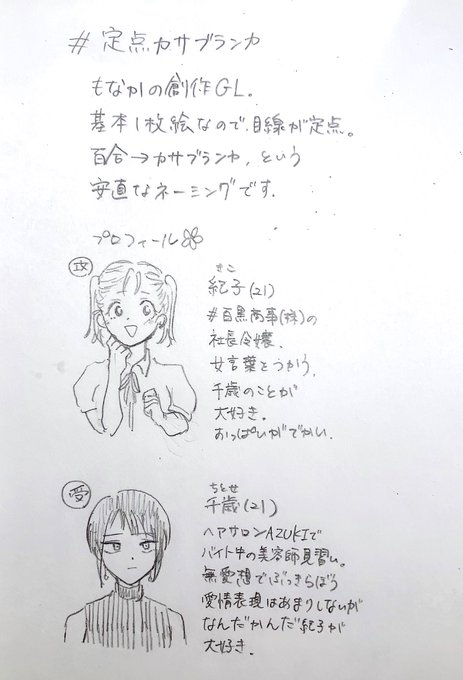 #定点カサブランカ
もなかの創作GL。
基本1枚絵なので、目線が定点。
百合→カサブランカ、という
安直なネーミングです。
プロフィール
攻
きこ
紀子(21)
#百黒商事(株)の
社長令嬢。
女言葉をつかう。
千歳のことが
大好き。
おっぱいがでかい。
受
ちとせ
千歳(21)
ヘアサロンAZUKIで
バイト中の美容師見習い。
無愛想でぶっきらぼう
愛情表現はあまりしないが
なんだかんだ紀子が
大好き。